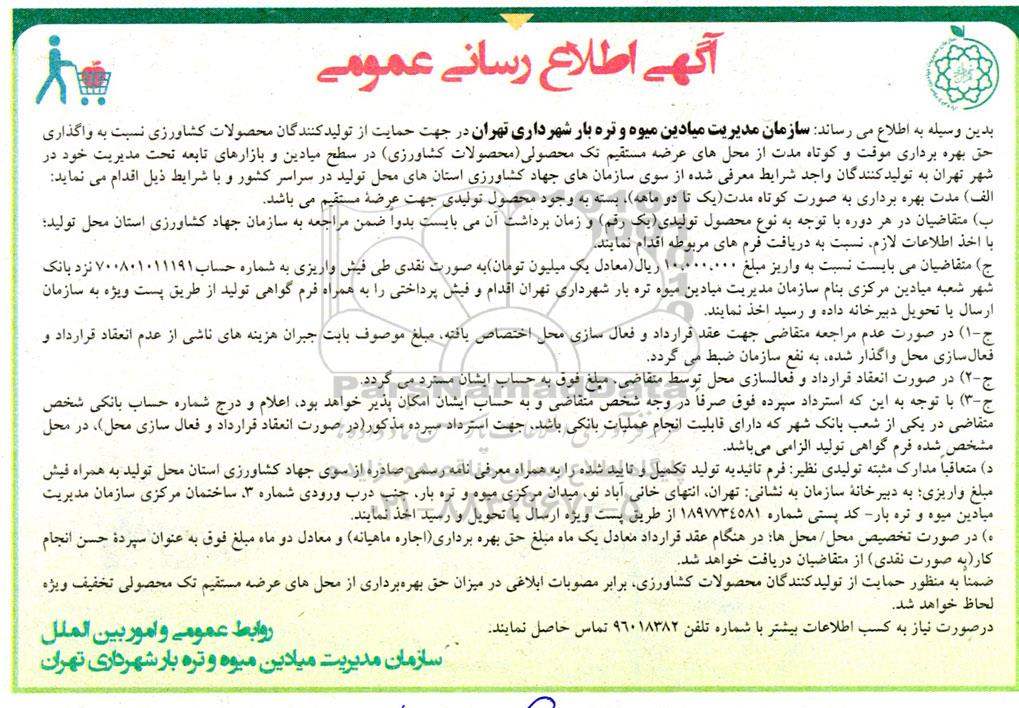 آگهی اطلاع رسانی عمومی
بدین وسیله به اطلاع می رساند: سازمان مدیریت میادین میوه و تره بار شهرداری تهران در جهت حمایت از تولیدکنندگان محصولات کشاورزی نسبت به واگذاری
حق بهره برداری موقت و کوتاه مدت از محل های عرضه مستقیم تک محصولی(محصولات کشاورزی) در سطح میادین و بازارهای تابعه تحت مدیریت خود در
شهر تهران به تولیدکنندگان واجد شرایط معرفی شده از سوی سازمان های جهاد کشاورزی استان های محل تولید در سراسر کشور و با شرایط ذیل اقدام می نماید:
الف) مدت بهره برداری به صورت کوتاه مدت(یک تا دو ماهه)، بسته به وجود محصول تولیدی جهت عرضۀ مستقیم می باشد.
ب) متقاضیان در هر دوره با توجه به نوع محصول تولیدی(یک رقم) و زمان برداشت آن می بایست بدوا ضمن مراجعه به سازمان جهاد کشاورزی استان محل تولید؛
با اخذ اطلاعات لازم، نسبت به دریافت فرم های مربوطه اقدام نمایند.
ج) متقاضیان می بایست نسبت به واریز مبلغ ۱۰,۰۰۰,۰۰۰ ریال(معادل یک میلیون تومان)به صورت نقدی طی فیش واریزی به شماره حساب۷۰۰۸۰۱۰۱۱۱۹۱ نزد بانک
شهر شعبه میادین مرکزی بنام سازمان مدیریت میادین میوه تره بار شهرداری تهران اقدام و فیش پرداختی را به همراه فرم گواهی تولید از طریق پست ویژه به سازمان
ارسال یا تحویل دبیرخانه داده و رسید اخذ نمایند.
ج-۱) در صورت عدم مراجعه متقاضی جهت عقد قرارداد و فعال سازی محل اختصاص یافته، مبلغ موصوف بابت جبران هزینه های ناشی از عدم انعقاد قرارداد و
فعال‌سازی محل واگذار شده، به نفع سازمان ضبط می گردد.
ج-۲) در صورت انعقاد قرارداد و فعالسازی محل توسط متقاضی، مبلغ فوق به حساب ایشان مسترد می گردد.
ج-۳) با توجه به این که استرداد سپرده فوق صرفا در وجه شخص متقاضی و به حساب ایشان امکان پذیر خواهد بود، اعلام و درج شماره حساب بانکی شخص
متقاضی در یکی از شعب بانک شهر که دارای قابلیت انجام عملیات بانکی باشد، جهت استرداد سپرده مذکور(در صورت انعقاد قرارداد و فعال سازی محل)، در محل
مشخص شده فرم گواهی تولید الزامی می‌باشد.
د) متعاقباً مدارک مثبته تولیدی نظیر: فرم تائیدیه تولید تکمیل و تایید شده را به همراه معرفی نامه رسمی صادره از سوی جهاد کشاورزی استان محل تولید به همراه فیش
مبلغ واریزی؛ به دبیرخانۀ سازمان به نشانی: تهران، انتهای خانی آباد نو، میدان مرکزی میوه و تره بار، جنب درب ورودی شماره ۳، ساختمان مرکزی سازمان مدیریت
میادین میوه و تره بار- کد پستی شماره ۱۸۹۷۷۳۴۵۸۱ از طریق پست ویژه ارسال یا تحویل و رسید اخذ نمایند.
ه) در صورت تخصیص محل/ محل ها؛ در هنگام عقد قرارداد معادل یک ماه مبلغ حق بهره برداری(اجاره ماهیانه) و معادل دو ماه مبلغ فوق به عنوان سپردۀ حسن انجام
کار(به صورت نقدی) از متقاضیان دریافت خواهد شد.
ضمناً به منظور حمایت از تولیدکنندگان محصولات کشاورزی، برابر مصوبات ابلاغی در میزان حق بهره‌برداری از محل های عرضه مستقیم تک محصولی تخفیف ویژه
لحاظ خواهد شد.
درصورت نیاز به کسب اطلاعات بیشتر با شماره تلفن ۹۶۰۱۸۳۸۲ تماس حاصل نمایند.
روابط عمومی و امور بین الملل
سازمان مدیریت میادین میوه و تره بار شهرداری تهران
ParsNamadData
۰۲۱-۸۸۳۴۹۶۷۰-۵